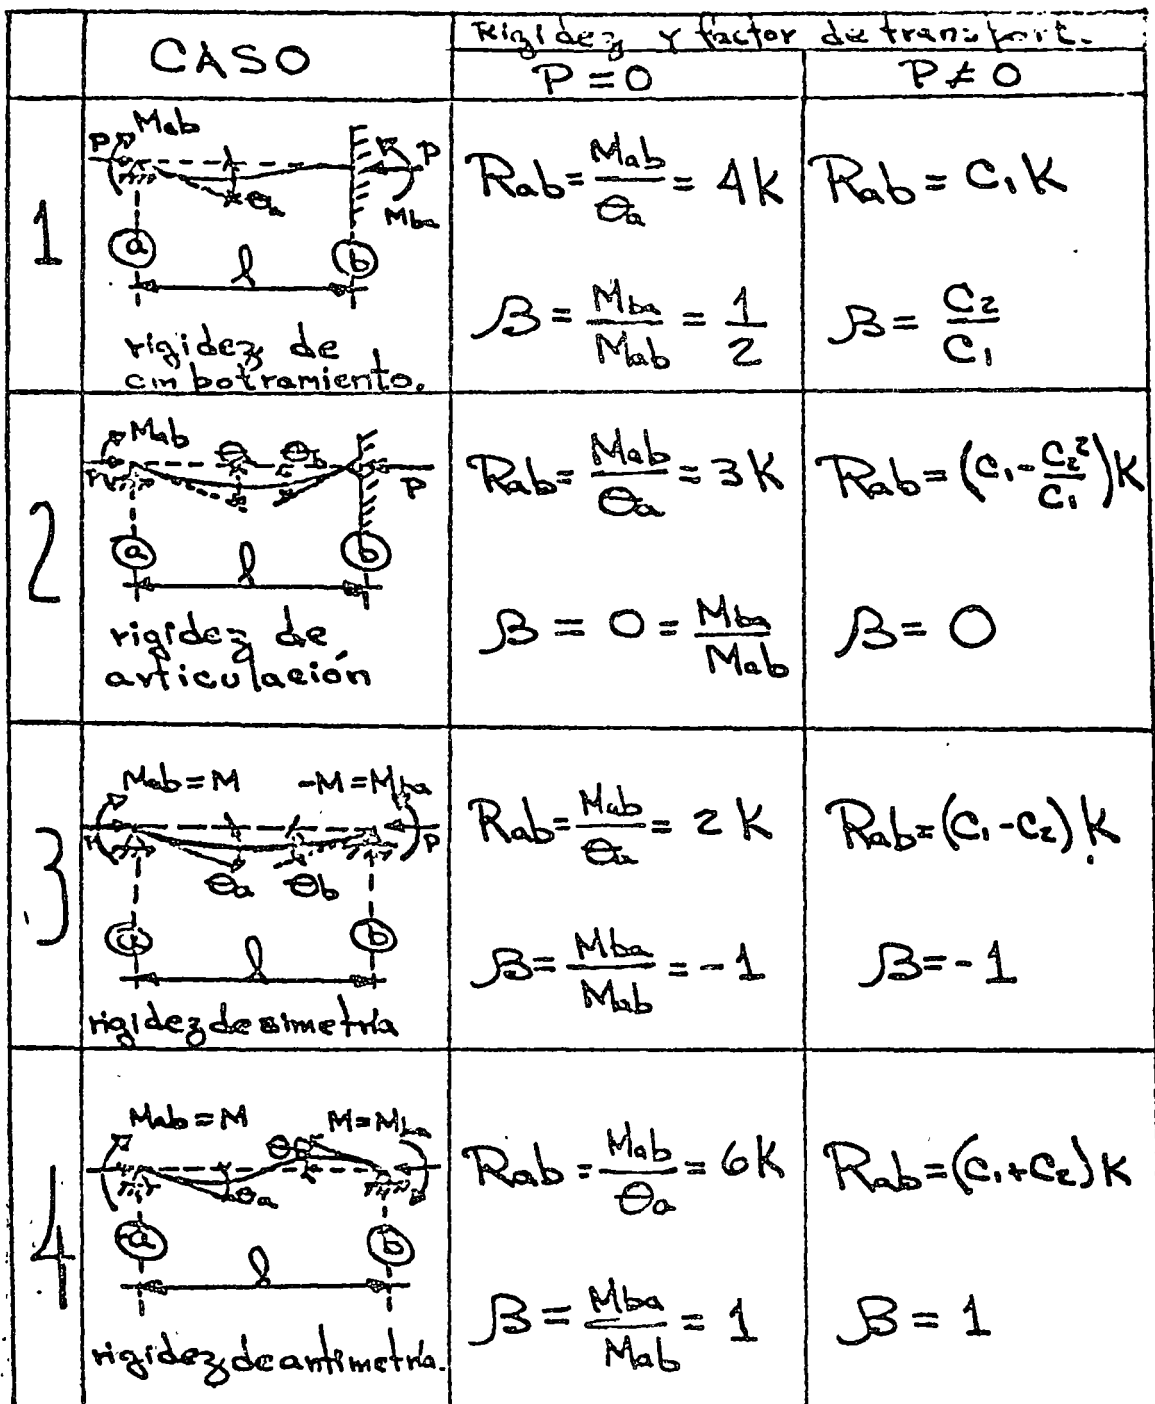 CASO
Rigidez y factor de transport.
P = 0
P ≠ 0
1
P
Mab
P
Mba
θa
a
b
l
rigidez de
embotramiento.
Rab = Mab/θa = 4K
β = Mba/Mab = 1/2
Rab = C₁K
β = C₂/C₁
2
Mab
θa
θb
P
a
b
l
rigidez de
articulación
Rab = Mab/θa = 3K
β = 0 = Mba/Mab
Rab = (C₁ - C₂²/C₁)K
β = 0
3
Mab = M
-M = Mba
P
θa
θb
a
b
l
rigidez de simetría
Rab = Mab/θa = 2K
β = Mba/Mab = -1
Rab = (C₁ - C₂)K
β = -1
4
Mab = M
M = Mba
θa
a
b
l
rigidez de antimetría.
Rab = Mab/θa = 6K
β = Mba/Mab = 1
Rab = (C₁ + C₂)K
β = 1